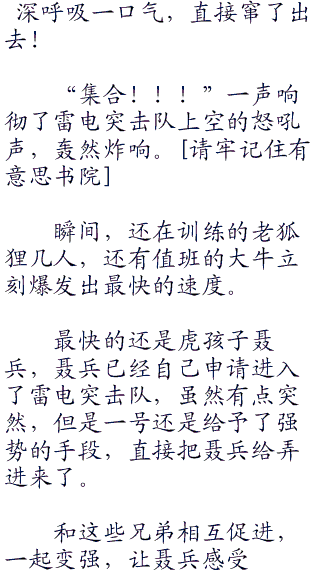 深呼吸一口气，直接窜了出
去！
“集合！！！”一声响
彻了雷电突击队上空的怒吼
声，轰然炸响。[请牢记住有
意思书院]
瞬间，还在训练的老狐
狸几人，还有值班的大牛立
刻爆发出最快的速度。
最快的还是虎孩子聂
兵，聂兵已经自己申请进入
了雷电突击队，虽然有点突
然，但是一号还是给予了强
势的手段，直接把聂兵给弄
进来了。
和这些兄弟相互促进，
一起变强，让聂兵感受